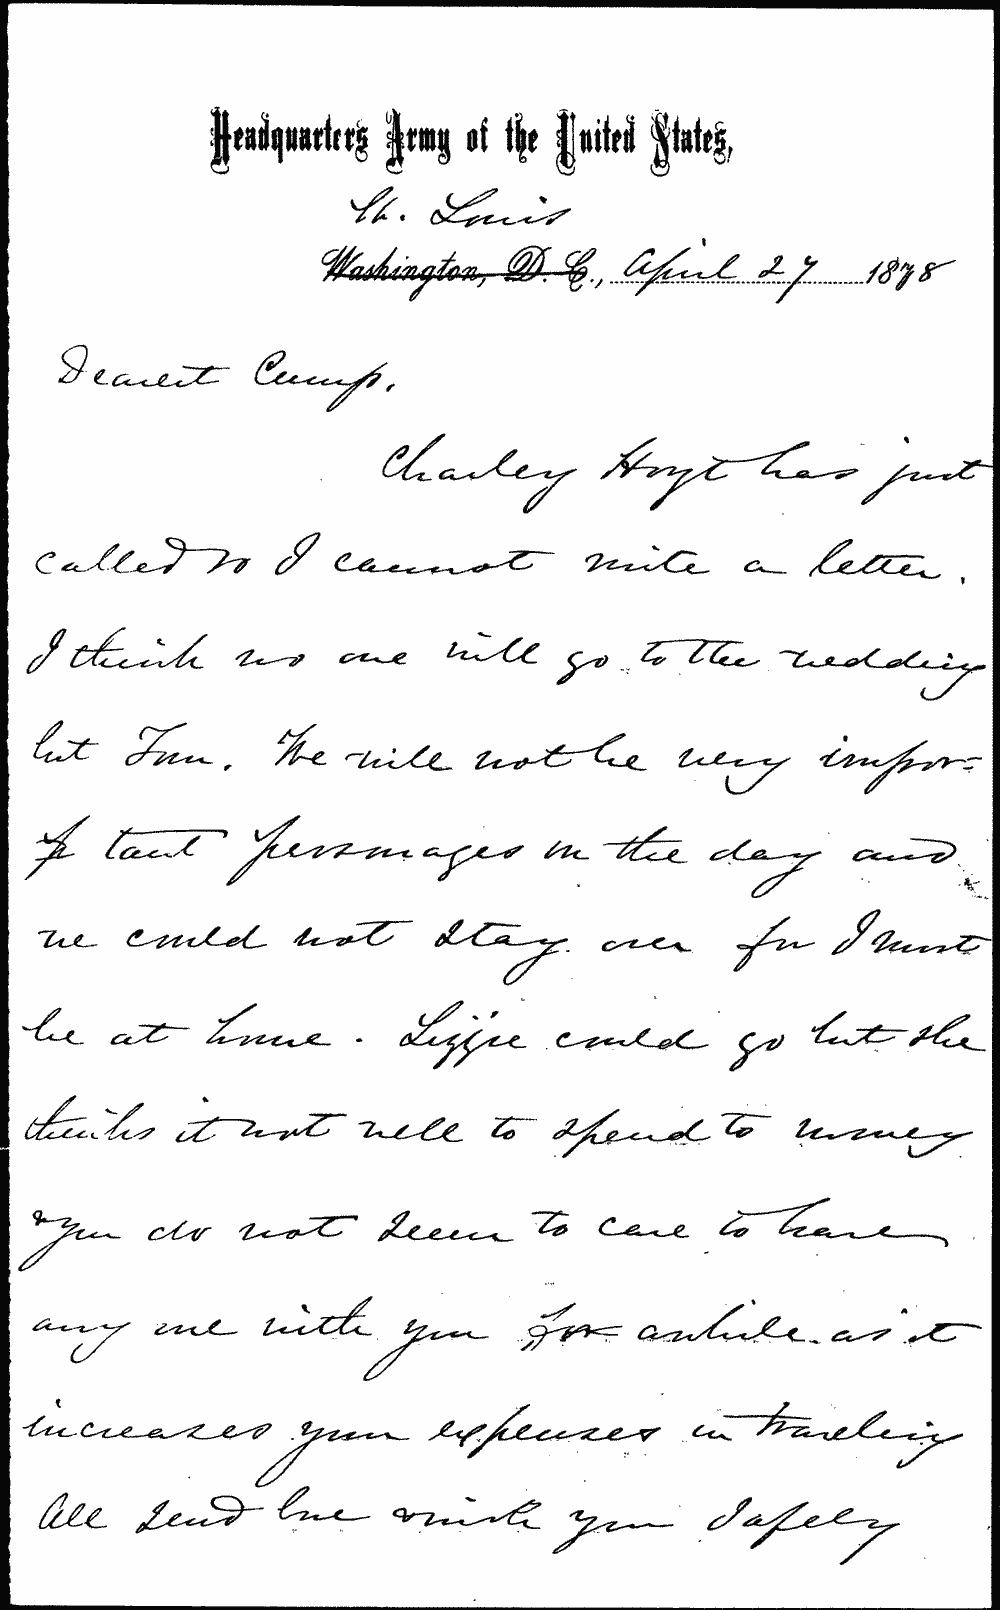 Headquarters Army of the United States,
St. Louis
Washington, D. C., April 27 1878
Dearest Cump.
Charley Hoyt has just
called so I cannot write a letter.
I think no one will go to the wedding
but Tom. We will not be very impor=
tant personages on the day and
we could not stay over for I must
be at home. Lizzie could go but she
thinks it not well to spend to money
& you do not seem to care to have
any one with you for awhile as it
increases your expenses in traveling
All send love & wish you safely